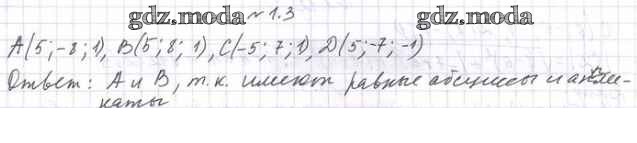 gdz.moda № 1.3 gdz.moda
A(5;-8;1), B(5;8; 1), C(-5; 7; 1), D(5;-7; -1)
Ответ: A и B, т.к. имеют равные абсциссы и апли-
каты